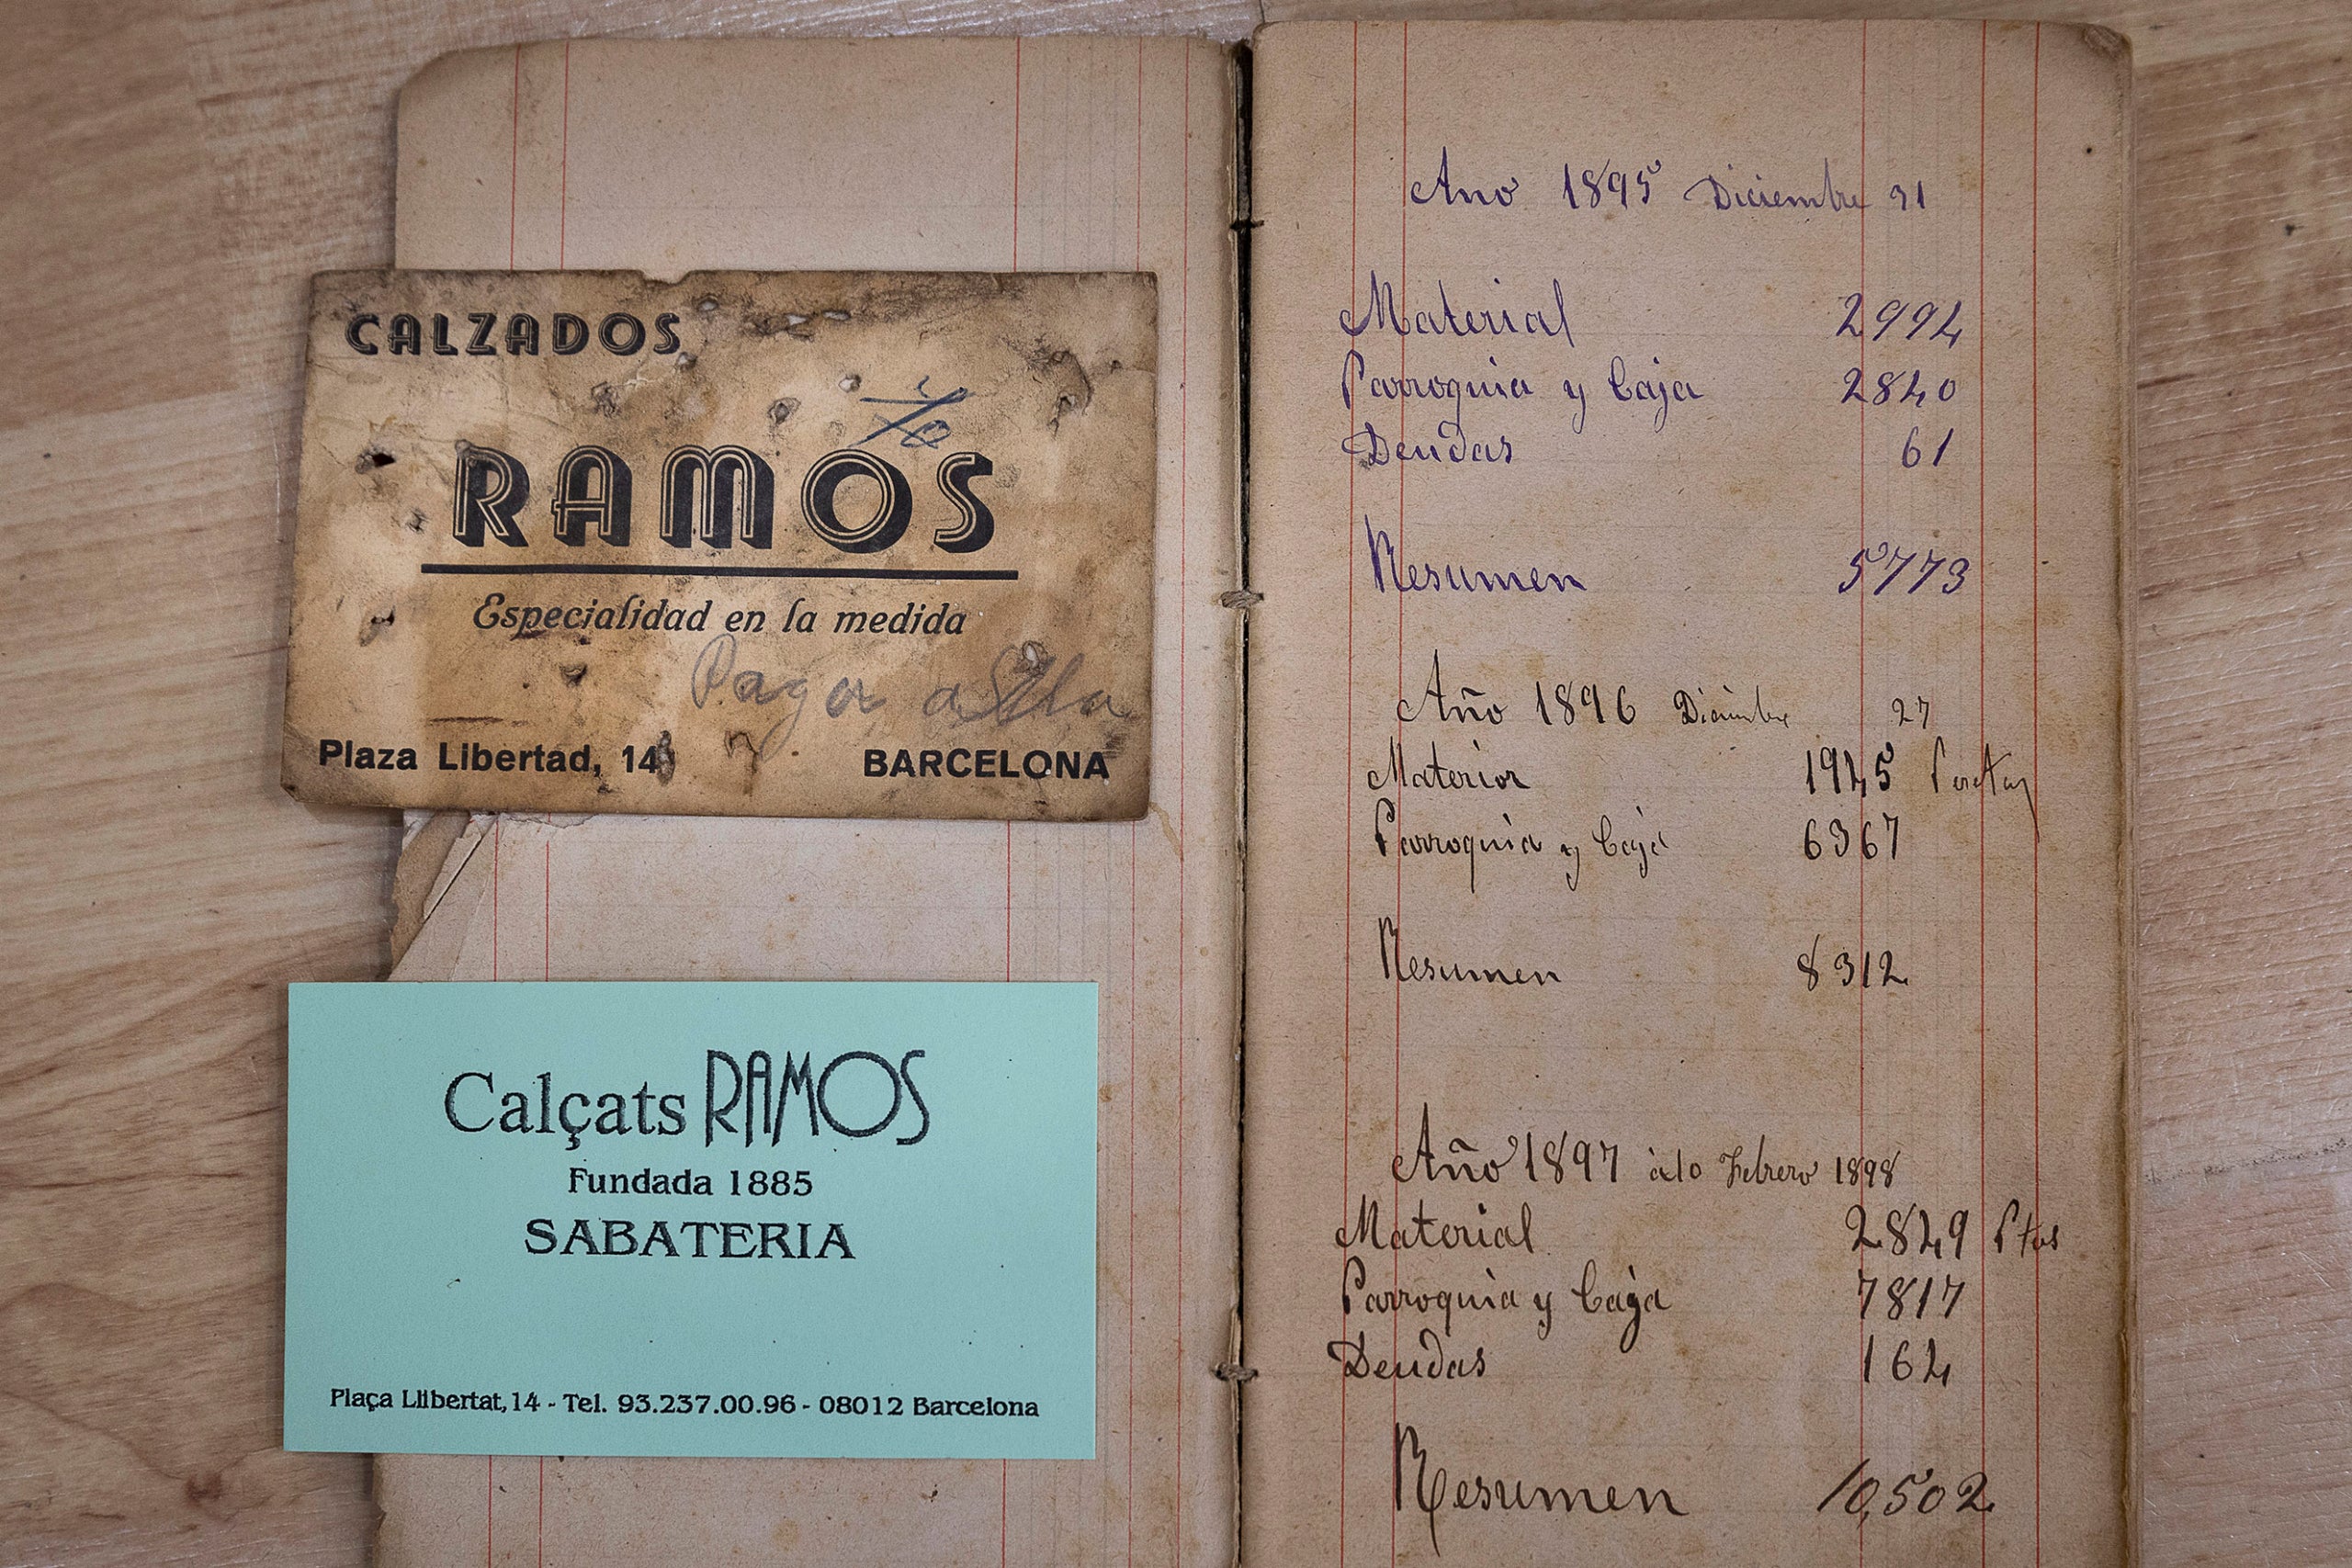 CALZADOS
RAMOS
Especialidad en la medida
Pagar a
Plaza Libertad, 14
BARCELONA
Calçats RAMOS
Fundada 1885
SABATERIA
Plaça Llibertat,14 - Tel. 93.237.00.96 - 08012 Barcelona
Ano 1895 Diciembre 31
Material 2994
Parroquia y Caja 2840
Deudas 61
Resumen 5773
Año 1896 Diciembre 27
Material 1945 Pesetas
Parroquia y Caja 6367
Resumen 8312
Año 1897 à 10 Febrero 1898
Material 2849 Ptas
Parroquia y Caja 7817
Deudas 164
Resumen 10,502